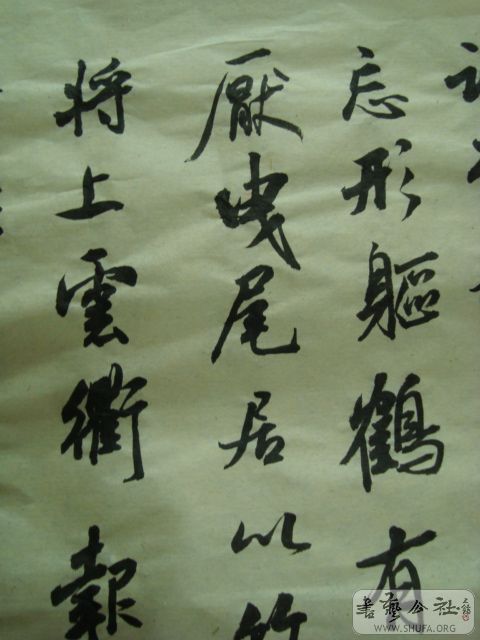 忘形軀鶴有
厭曳尾居以竹
将上雲衢報
書藝公社
WWW.SHUFA.ORG